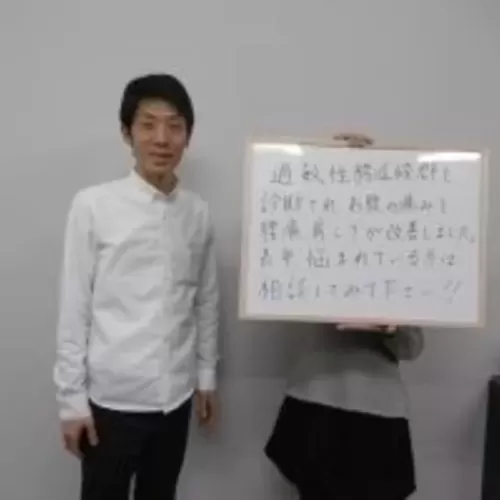 過敏性腸症候群と
診断され お腹の痛みと
腰痛 肩こりが改善しました。
長年 悩まれている方は
相談してみて下さい!!